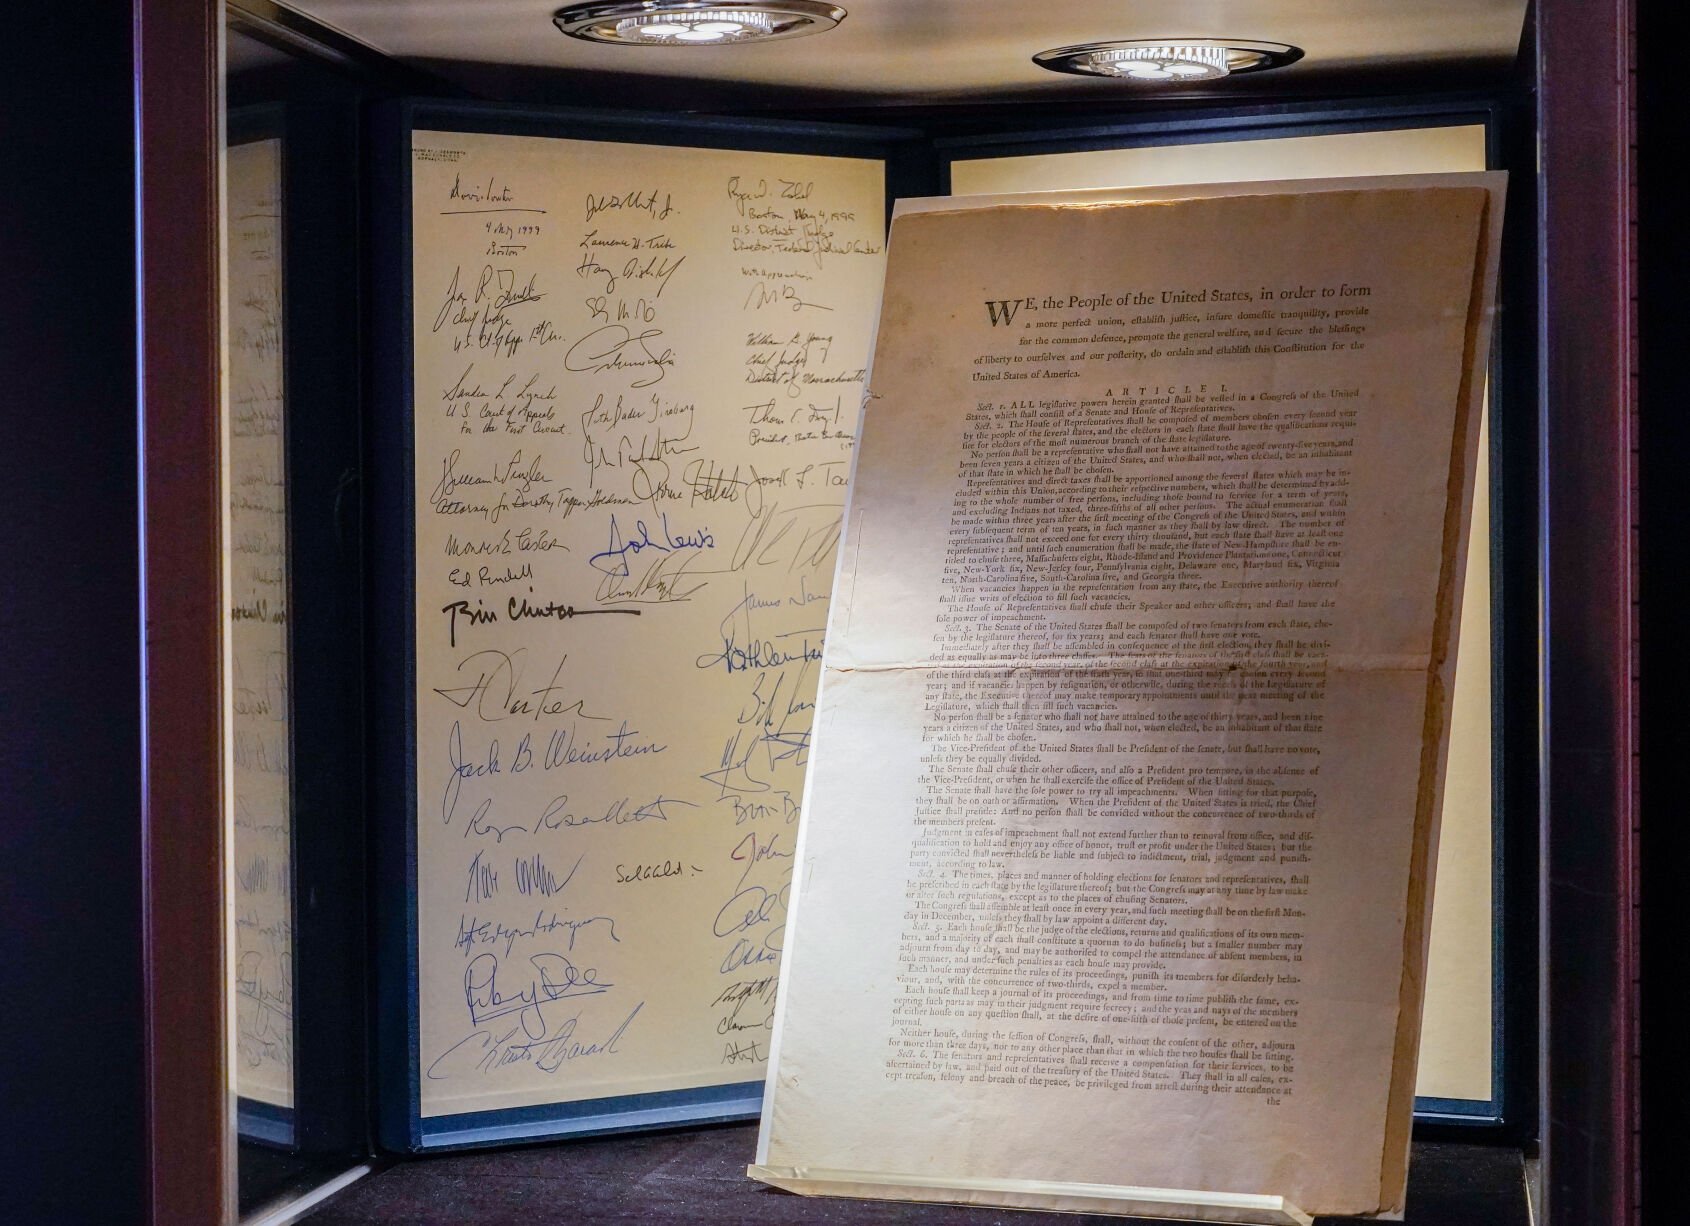 4 May 1999
Boston
Chief Judge
Sandra L. Lynch
U.S. Court of Appeals
For the First Circuit.
Attorney for Dorothy Tapper Goldman
Ed Rendell
Bill Clinton
J Carter
Jack B. Weinstein
Laurence H. Tribe
Ruth Bader Ginsburg
John Lewis
Boston, May 4, 1999
U.S. District Judge
Director, Federal Judicial Center
With appreciation
William G. Young
Chief Judge
District of Massachusetts
WE, the People of the United States, in order to form
a more perfect union, establish justice, insure domestic tranquility, provide
for the common defence, promote the general welfare, and secure the blessings
of liberty to ourselves and our posterity, do ordain and establish this Constitution for the
United States of America.
ARTICLE I.
Sect. 1. ALL legislative powers herein granted shall be vested in a Congress of the United
States, which shall consist of a Senate and House of Representatives.
Sect. 2. The House of Representatives shall be composed of members chosen every second year
by the people of the several states, and the electors in each state shall have the qualifications requi-
site for electors of the most numerous branch of the state legislature.
No person shall be a representative who shall not have attained to the age of twenty-five years, and
been seven years a citizen of the United States, and who shall not, when elected, be an inhabitant
of that state in which he shall be chosen.
Representatives and direct taxes shall be apportioned among the several states which may be in-
cluded within this Union, according to their respective numbers, which shall be determined by add-
ing to the whole number of free persons, including those bound to service for a term of years,
and excluding Indians not taxed, three-fifths of all other persons. The actual enumeration shall
be made within three years after the first meeting of the Congress of the United States, and within
every subsequent term of ten years, in such manner as they shall by law direct. The number of
representatives shall not exceed one for every thirty thousand, but each state shall have at least one
representative; and until such enumeration shall be made, the state of New-Hampshire shall be en-
titled to chuse three, Massachusetts eight, Rhode-Island and Providence Plantations one, Connecticut
five, New-York six, New-Jersey four, Pennsylvania eight, Delaware one, Maryland six, Virginia
ten, North-Carolina five, South-Carolina five, and Georgia three.
When vacancies happen in the representation from any state, the Executive authority thereof
shall issue writs of election to fill such vacancies.
The House of Representatives shall chuse their Speaker and other officers; and shall have the
sole power of impeachment.
Sect. 3. The Senate of the United States shall be composed of two senators from each state, cho-
sen by the legislature thereof, for six years; and each senator shall have one vote.
Immediately after they shall be assembled in consequence of the first election, they shall be divi-
ded as equally as may be into three classes. The seats of the senators of the first class shall be vaca-
ted at the expiration of the second year, of the second class at the expiration of the fourth year, and
of the third class at the expiration of the sixth year, so that one-third may be chosen every second
year; and if vacancies happen by resignation, or otherwise, during the recess of the Legislature of
any state, the Executive thereof may make temporary appointments until the next meeting of the
Legislature, which shall then fill such vacancies.
No person shall be a senator who shall not have attained to the age of thirty years, and been nine
years a citizen of the United States, and who shall not, when elected, be an inhabitant of that state
for which he shall be chosen.
The Vice-President of the United States shall be President of the senate, but shall have no vote,
unless they be equally divided.
The Senate shall chuse their other officers, and also a President pro tempore, in the absence of
the Vice-President, or when he shall exercise the office of President of the United States.
The Senate shall have the sole power to try all impeachments. When sitting for that purpose,
they shall be on oath or affirmation. When the President of the United States is tried, the Chief
Justice shall preside: And no person shall be convicted without the concurrence of two-thirds of
the members present.
Judgment in cases of impeachment shall not extend further than to removal from office, and dis-
qualification to hold and enjoy any office of honor, trust or profit under the United States; but the
party convicted shall nevertheless be liable and subject to indictment, trial, judgment and punish-
ment, according to law.
Sect. 4. The times, places and manner of holding elections for senators and representatives, shall
be prescribed in each state by the legislature thereof; but the Congress may at any time by law make
or alter such regulations, except as to the places of chusing Senators.
The Congress shall assemble at least once in every year, and such meeting shall be on the first Mon-
day in December, unless they shall by law appoint a different day.
Sect. 5. Each house shall be the judge of the elections, returns and qualifications of its own mem-
bers, and a majority of each shall constitute a quorum to do business; but a smaller number may
adjourn from day to day, and may be authorised to compel the attendance of absent members, in
such manner, and under such penalties as each house may provide.
Each house may determine the rules of its proceedings, punish its members for disorderly beha-
viour, and, with the concurrence of two-thirds, expel a member.
Each house shall keep a journal of its proceedings, and from time to time publish the same, ex-
cepting such parts as may in their judgment require secrecy; and the yeas and nays of the members
of either house on any question shall, at the desire of one-fifth of those present, be entered on the
journal.
Neither house, during the session of Congress, shall, without the consent of the other, adjourn
for more than three days, nor to any other place than that in which the two houses shall be sitting.
Sect. 6. The senators and representatives shall receive a compensation for their services, to be
ascertained by law, and paid out of the treasury of the United States. They shall in all cases, ex-
cept treason, felony and breach of the peace, be privileged from arrest during their attendance at
the